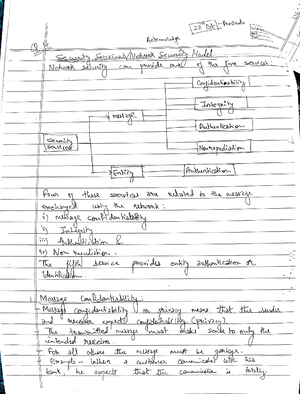 Security Services / Network Security Model
Network security can provide one of the five services:
Confidentiality
Message
Integrity
Authentication
Nonrepudiation
Security
Services
Entity
Authentication
Four of these services are related to the message
exchanged using the network:
i) message confidentiality
ii) Integrity
iii) Authentication &
iv) Non
The fifth service provides entity authentication or
identification.
Message Confidentiality:
- Message confidentiality or privacy means that the sender
and receiver expect confidentiality (privacy).
- The transmitted message must make sense to only the
intended receiver
- For all others the message must be garbage.
- Example - When a customer communicates with his
bank, he expects that the communication is totally